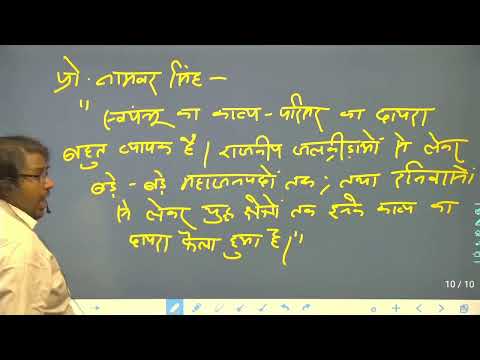 प्रो. नामवर सिंह –
"स्वयंभू का काव्य-परिसर का दायरा
बहुत व्यापक है। राजकीय जलक्रीडाओं से लेकर
बड़े-बड़े महाजनपदों तक; तथा रनिवासों
से लेकर युद्ध क्षेत्रों तक इनके काव्य का
दायरा फैला हुआ है।"
10 / 10